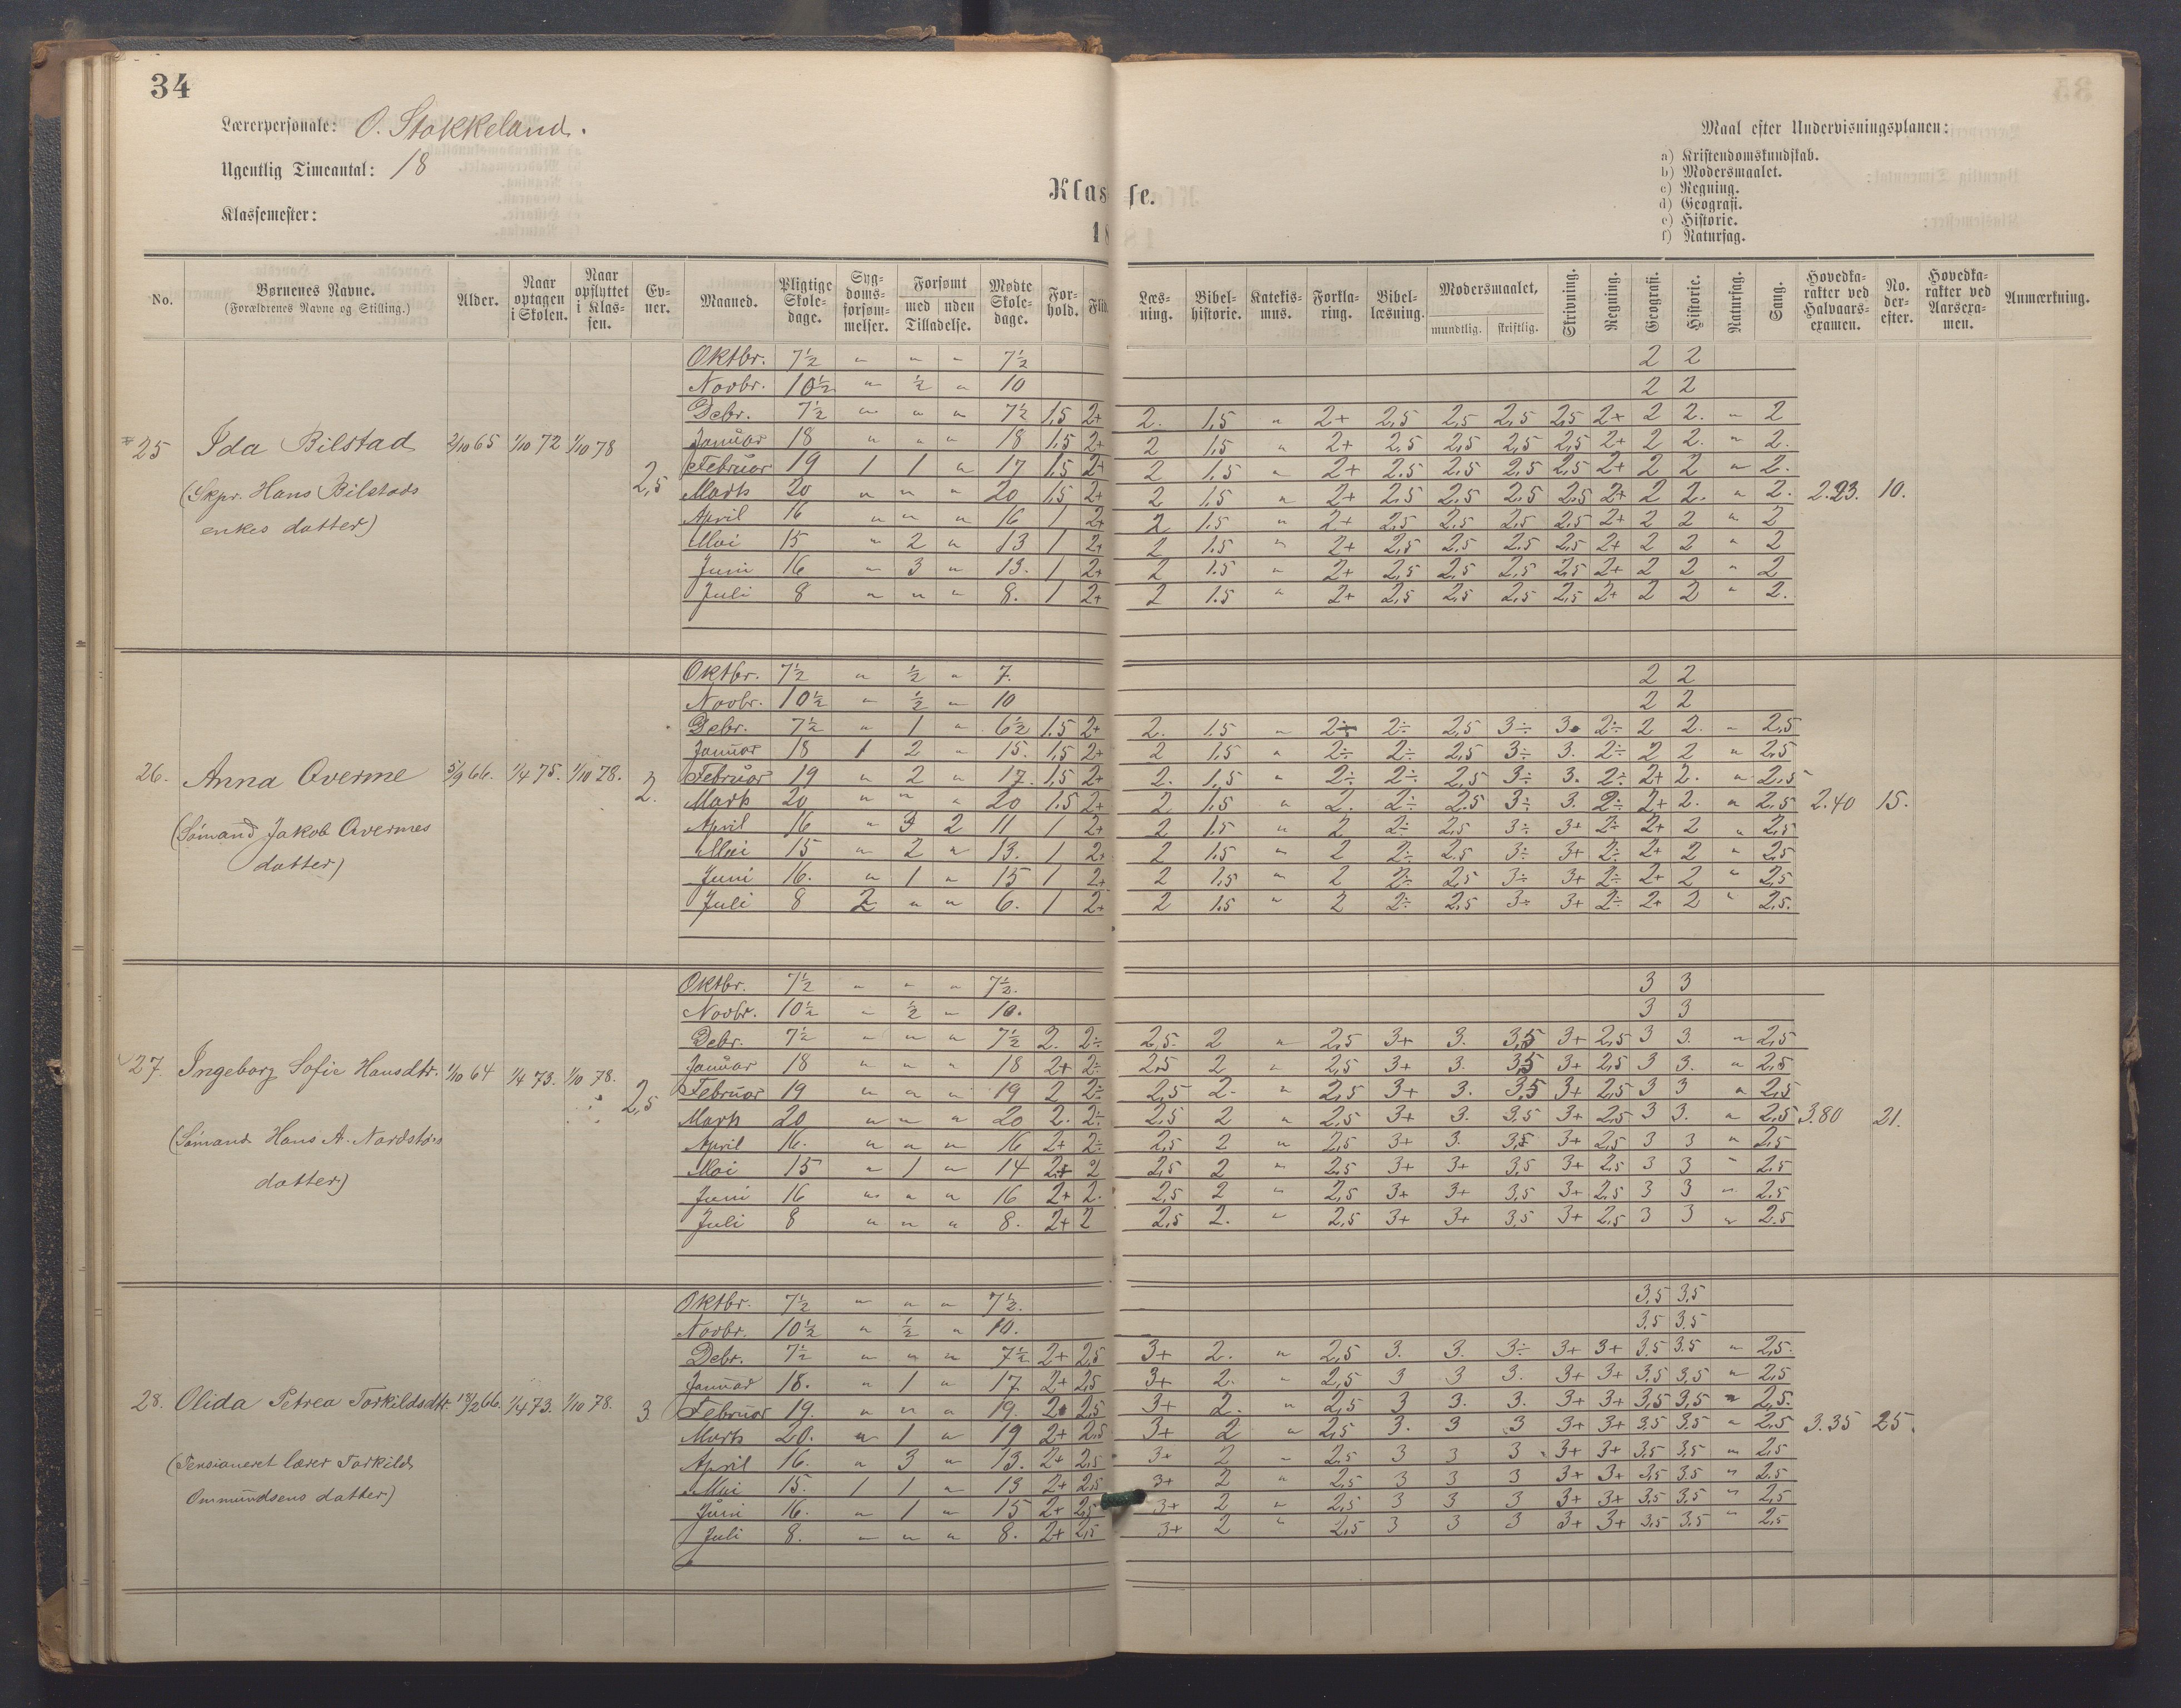 34
Lærerpersonale: O. Stokkeland.
Ugentlig Timeantal: 18
Klassemester:
Klasse.
18
Maal efter Undervisningsplanen:
a) Kristendomskundskab.
b) Modersmaalet.
c) Regning.
d) Geografi.
e) Historie.
f) Naturfag.
No. Børnenes Navne. (Forældrenes Navne og Stilling.) Alder. Naar optagen i Skolen. Naar opflyttet i Klassen. Evner. Maaned. Pligtige Skoledage. Sygdomsforsømmelser. Forsømt med uden Tilladelse. Mødte Skoledage. Forhold. Flid. Læsning. Bibelhistorie. Katekismus. Forklaring. Bibellæsning. Modersmaalet, mundtlig. skriftlig. Skrivning. Regning. Geografi. Historie. Naturfag. Sang. Hovedkarakter ved Halvaarsexamen. No. derefter. Hovedkarakter ved Aarsexamen. Anmærkning.
25 Ida Bilstad 2/10 65 1/10 72 1/10 78 2,5
(Skpr. Hans Bilstads
enkes datter)
Oktbr. 7½ " " " 7½ 2 2
Novbr. 10½ " ½ " 10 2 2
Debr. 7½ " " " 7½ 1,5 2+ 2. 1,5 " 2+ 2,5 2,5 2,5 2,5 2+ 2 2. " 2
Januar 18 " " " 18 1,5 2+ 2 1,5 " 2+ 2,5 2,5 2,5 2,5 2+ 2 2. " 2.
Februar 19 1 1 " 17 1,5 2+ 2 1,5 " 2+ 2,5 2,5 2,5 2,5 2+ 2 2 " 2.
Marts 20 " " " 20 1,5 2+ 2 1,5 " 2+ 2,5 2,5 2,5 2,5 2+ 2 2. " 2. 2.23. 10.
April 16 " " " 16 1 2+ 2 1.5 " 2+ 2,5 2,5 2,5 2,5 2+ 2 2 " 2
Mai 15 " 2 " 13 1 2+ 2 1.5 " 2+ 2,5 2,5 2,5 2,5 2+ 2 2 " 2
Juni 16 " 3 " 13. 1 2+ 2 1.5 " 2+ 2,5 2,5 2,5 2,5 2+ 2 2 " 2
Juli 8 " " " 8. 1 2+ 2 1.5 " 2+ 2,5 2,5 2,5 2,5 2+ 2 2 " 2.
26. Anna Overme 5/9 66. 1/4 75. 1/10 78. 2.
(Sömand Jakob Overmes
datter)
Oktbr. 7½ " ½ " 7. 2 2
Novbr. 10½ " ½ " 10 2 2
Debr. 7½ " 1 " 6½ 1.5 2+ 2. 1.5 " 2÷ 2÷ 2,5 3÷ 3. 2÷ 2 2. " 2,5
Januar 18 1 2 " 15. 1,5 2+ 2 1,5 " 2÷ 2÷ 2,5 3÷ 3. 2÷ 2 2 " 2,5
Februar 19 " 2 " 17. 1,5 2+ 2. 1,5 " 2÷ 2÷ 2,5 3÷ 3. 2÷ 2+ 2. " 2,5
Marts 20 " " " 20 1,5 2+ 2 1.5 " 2. 2÷ 2.5 3÷ 3. 2÷ 2+ 2. " 2.5 2.40 15.
April 16 " 3 2 11 1 2+ 2 1.5 " 2 2÷ 2,5 3÷ 3+ 2÷ 2+ 2 " 2,5
Mai 15 " 2 " 13. 1 2+ 2 1,5 " 2 2÷ 2.5 3÷ 3+ 2÷ 2+ 2 " 2,5
Juni 16. " 1 " 15 1 2+ 2 1,5 " 2 2÷ 2,5 3÷ 3+ 2÷ 2+ 2 " 2,5
Juli 8 2 " " 6. 1 2+ 2 1.5 " 2 2÷ 2,5 3÷ 3+ 2÷ 2+ 2 " 2,5.
27. Ingeborg Sofie Hansdtr. 1/10 64 1/4 73. 1/10 78. 2,5
(Sömand Hans A. Nordstøs
datter)
Oktbr. 7½ " " " 7½. 3 3
Novbr. 10½ " ½ " 10. 3 3
Debr. 7½ " " " 7½ 2. 2÷ 2,5. 2 " 2,5 3+ 3. 3,5 3+ 2,5 3 3. " 2,5
Januar 18 " " " 18 2+ 2÷ 2,5 2 " 2,5 3+ 3. 3,5 3+ 2,5 3 3. " 2,5
Februar 19 " " " 19 2 2÷ 2,5 2. " 2,5 3+ 3. 3,5 3+ 2,5 3 3 " 2,5
Marts 20 " " " 20 2. 2÷ 2,5 2 " 2,5 3+ 3. 3.5 3+ 2,5 3 3. " 2,5 3.80 21.
April 16. " " " 16 2+ 2÷ 2,5 2 " 2,5 3+ 3. 3,5 3+ 2,5 3 3 " 2,5
Mai 15 " 1 " 14 2+ 2 2,5 2 " 2,5 3+ 3+ 3,5 3+ 2,5 3 3 " 2.5
Juni 16 " " " 16 2+ 2. 2,5 2 " 2,5 3+ 3+ 3,5 3+ 2,5 3 3 " 2.5
Juli 8 " " " 8. 2+ 2 2,5 2. " 2,5 3+ 3+ 3,5 3+ 2,5 3 3 " 2.5
28. Olida Petrea Torkildsdtr. 18/2 66. 1/4 73. 1/10 78. 3
(Pensioneret lærer Torkild
Ommundsens datter)
Oktbr. 7½ " " " 7½. 3,5 3,5
Novbr. 10½ " ½ " 10. 3,5 3,5
Debr. 7½ " " " 7½ 2+ 2,5 3+ 2. " 2,5 3. 3. 3÷ 3+ 3+ 3.5 3.5 " 2,5.
Januar 18. " 1 " 17 2+ 2,5 3+ 2. " 2,5 3 3 3. 3+ 3+ 3,5 3,5 " 2,5
Februar 19. " " " 19. 2 2,5 3+ 2. " 2,5 3 3. 3. 3+ 3+ 3,5 3,5 " 2,5.
Marts 20. " 1 " 19 2+ 2,5 3+ 2 " 2,5 3. 3 3 3+ 3+ 3.5 3.5 " 2.5 3.35 25.
April 16. " 3 " 13. 2+ 2,5 3+ 2 " 2.5 3 3 3 3+ 3+ 3,5 3,5 " 2.5
Mai 15. 1 1 " 13 2+ 2,5 3+ 2 " 2,5 3 3 3 3+ 3+ 3,5 3.5 " 2.5
Juni 16. " 1 " 15 2+ 2,5 3+ 2 " 2,5 3 3 3 3+ 3+ 3,5 3,5 " 2,5
Juli 8. " " " 8. 2+ 2,5 3+ 2 " 2,5 3 3 3 3+ 3+ 3.5 3.5 " 2,5